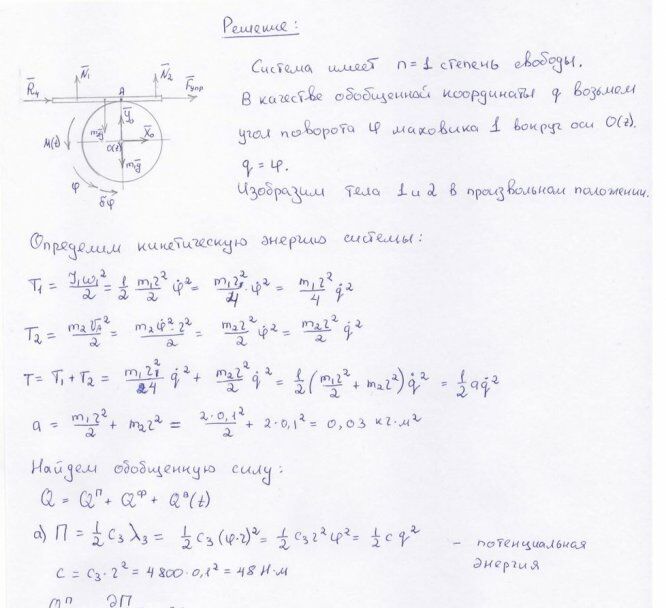 Решение:
N̄₁ N̄₂
R̄ч A F̄упр
m₂ḡ Ȳ₀
M(t) O(z) X̄₀
m₁ḡ
φ
δφ
Система имеет n=1 степень свободы.
В качестве обобщенной координаты q возьмем
угол поворота φ маховика 1 вокруг оси O(z).
q = φ.
Изобразим тела 1 и 2 в произвольном положении.
Определим кинетическую энергию системы:
T₁ = J₁ω₁²/2 = 1/2 m₁r²/2 φ̇² = m₁r²/4 · φ̇² = m₁r²/4 q̇²
T₂ = m₂V_A²/2 = m₂φ̇²·r²/2 = m₂r²/2 φ̇² = m₂r²/2 q̇²
T = T₁ + T₂ = m₁r²/4 q̇² + m₂r²/2 q̇² = 1/2 (m₁r²/2 + m₂r²) q̇² = 1/2 a q̇²
a = m₁r²/2 + m₂r² = 2·0,1²/2 + 2·0,1² = 0,03 кг·м²
Найдем обобщенную силу:
Q = Qᴾ + Qᶲ + Qᴮ(t)
а) П = 1/2 c₃ λ₃ = 1/2 c₃ (φ·r)² = 1/2 c₃ r² φ² = 1/2 c q² – потенциальная
энергия
c = c₃·r² = 4800·0,1² = 48 Н·м